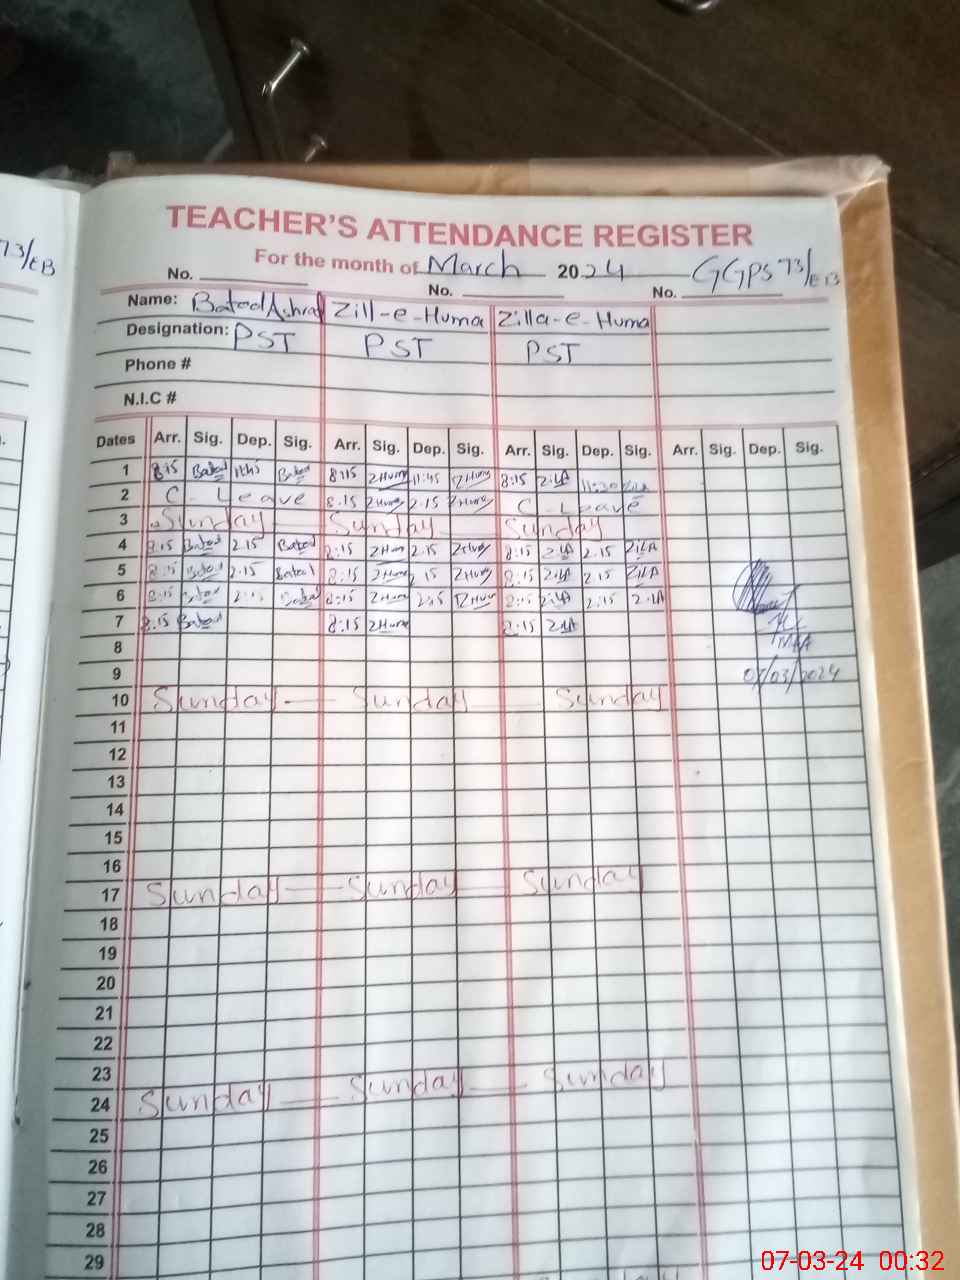 73/EB
TEACHER'S ATTENDANCE REGISTER
For the month of March 2024 GGPS 73/EB
No. No. No.
Name: Batool Ashraf Zill-e-Huma Zilla-e-Huma
Designation: PST PST PST
Phone #
N.I.C #
Dates Arr. Sig. Dep. Sig. Arr. Sig. Dep. Sig. Arr. Sig. Dep. Sig. Arr. Sig. Dep. Sig.
1 8:15 Batool 11:45 Batool 8:15 ZHuma 11:45 ZHuma 8:15 ZilA 11:30 ZilA
2 C - Leave 8:15 ZHuma 2:15 ZHuma C - Leave
3 Sunday Sunday Sunday
4 8:15 Batool 2:15 Batool 8:15 ZHuma 2:15 ZHuma 8:15 ZilA 2:15 ZilA
5 8:15 Batool 2:15 Batool 8:15 ZHuma 2:15 ZHuma 8:15 ZilA 2:15 ZilA
6 8:15 Batool 2:15 Batool 8:15 ZHuma 2:15 ZHuma 8:15 ZilA 2:15 ZilA
7 8:15 Batool 8:15 ZHuma 8:15 ZilA
8
9 07/03/2024
10 Sunday Sunday Sunday
11
12
13
14
15
16
17 Sunday Sunday Sunday
18
19
20
21
22
23
24 Sunday Sunday Sunday
25
26
27
28
29
07-03-24 00:32